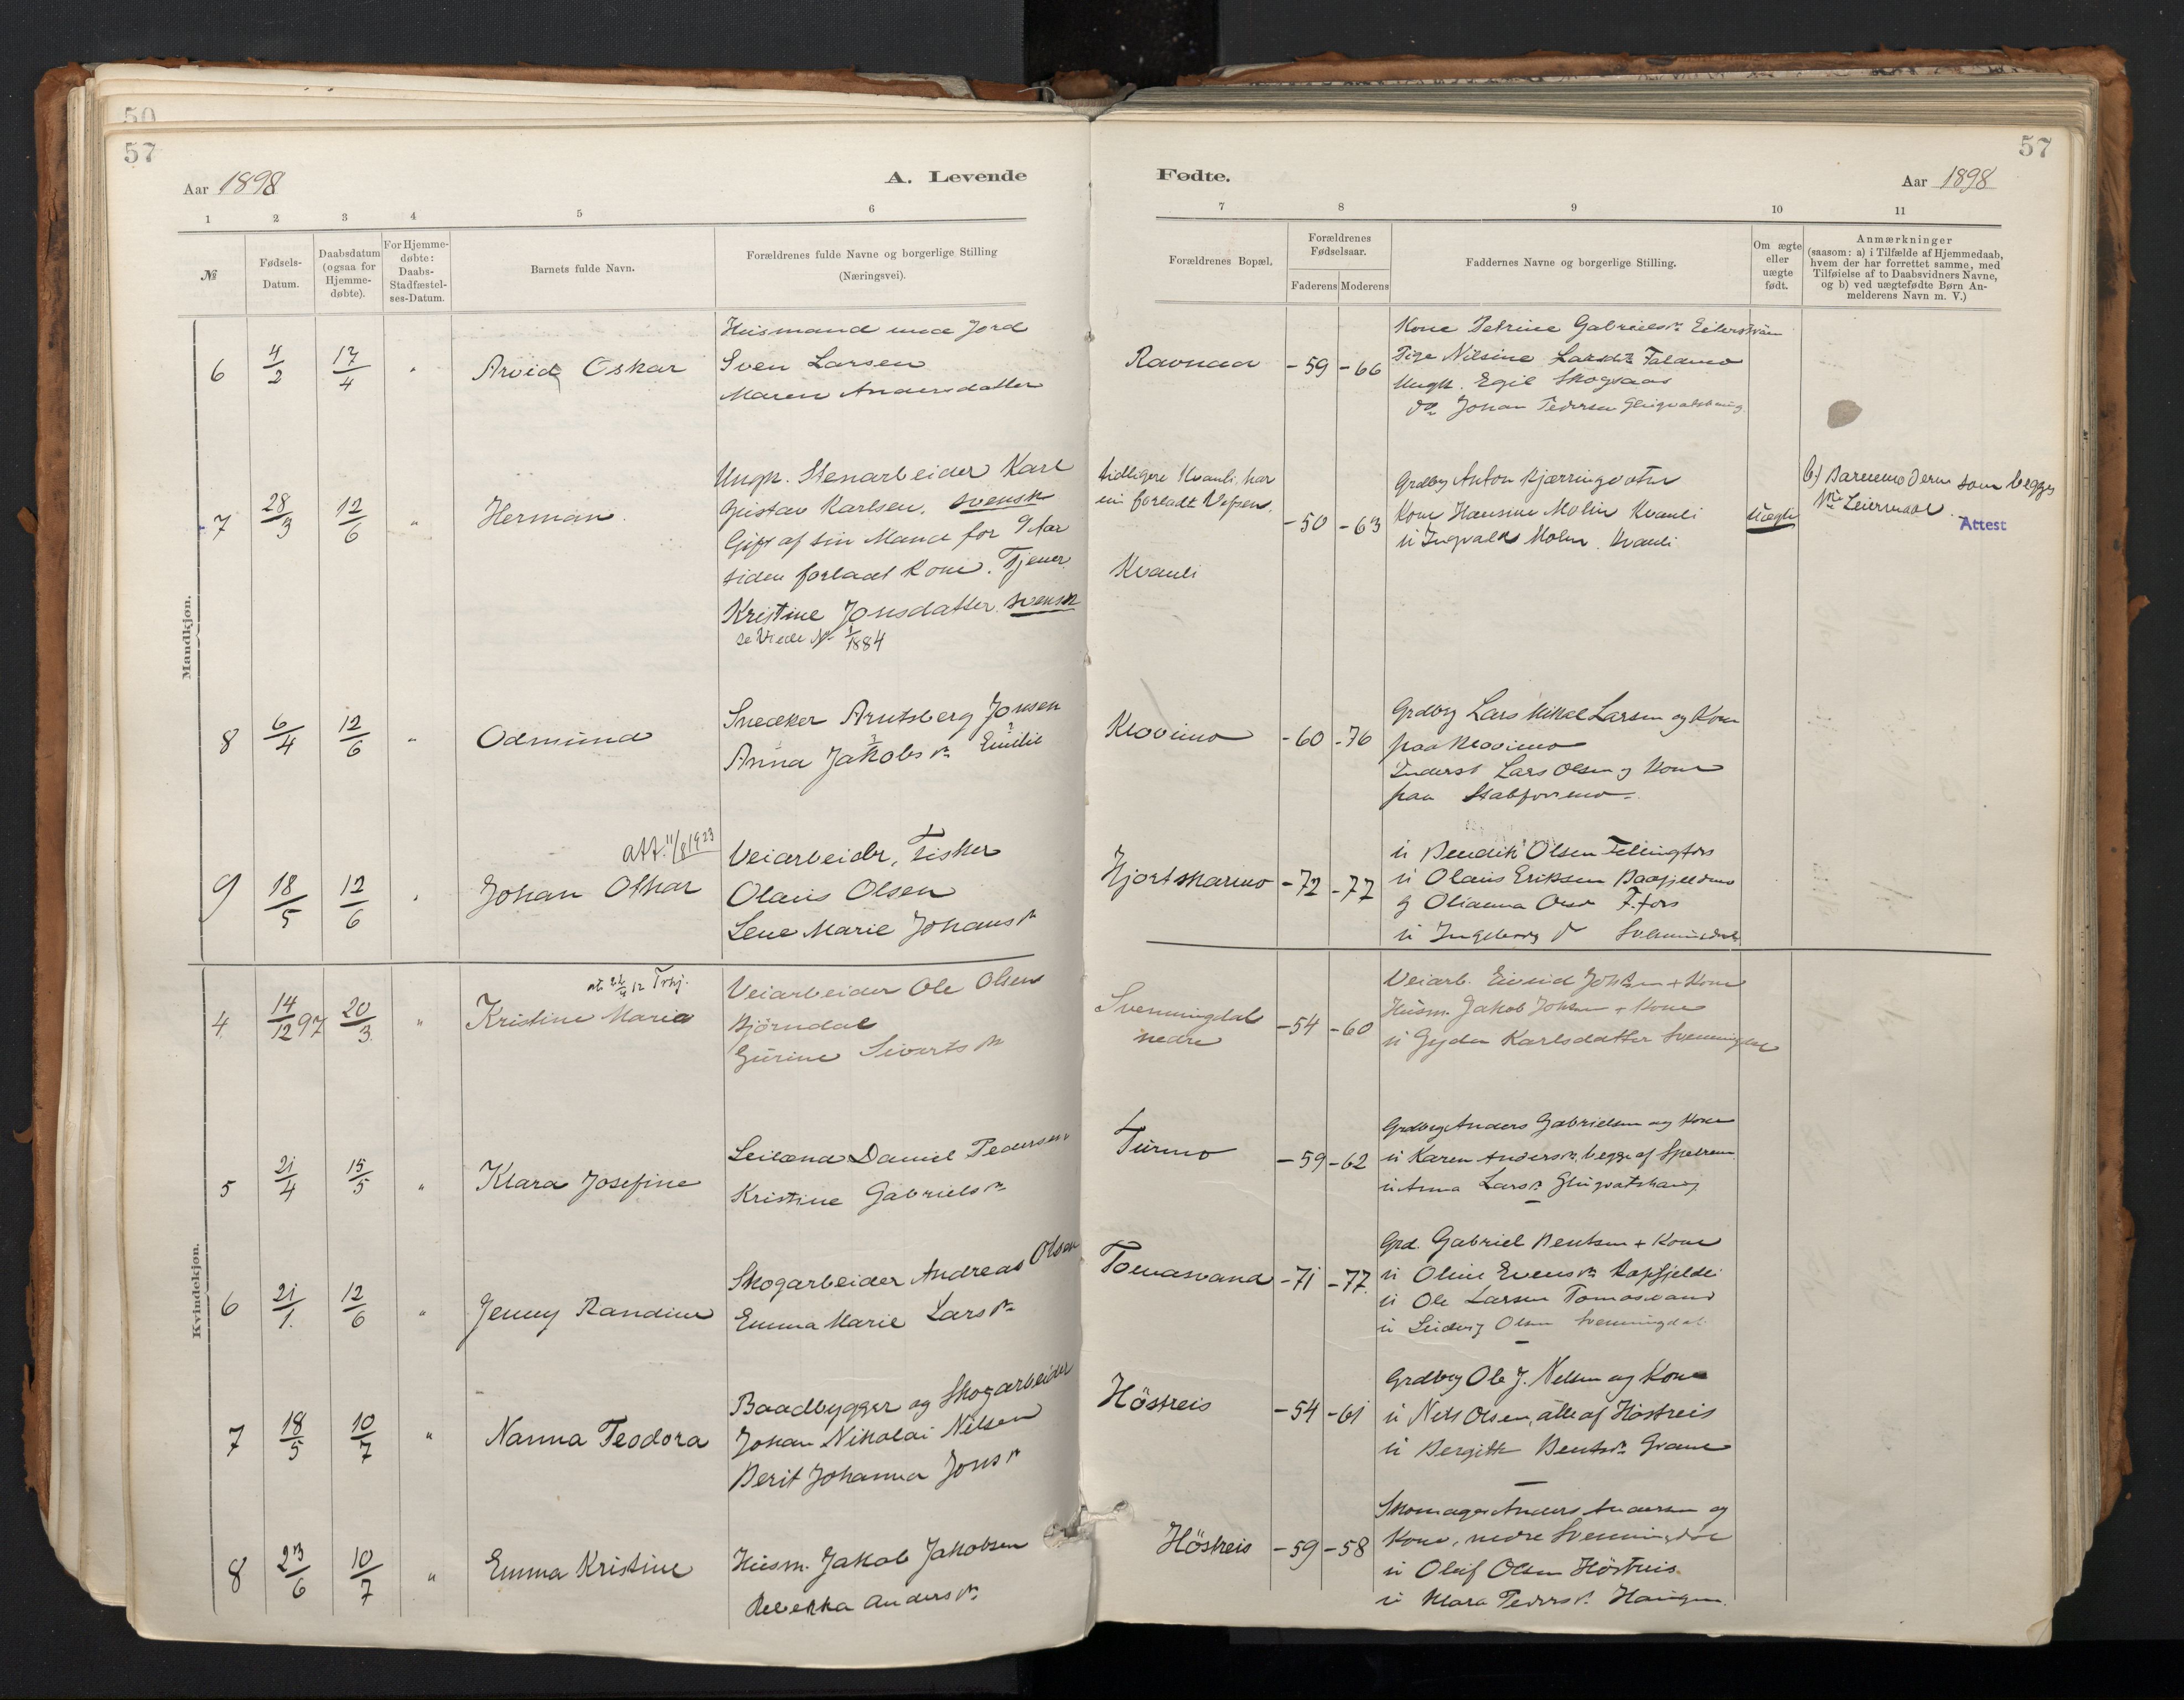 50
57
57
Aar 1898
A. Levende
Fødte.
Aar 1898
1 2 3 4 5 6 7 8 9 10 11
№
Fødsels-
Datum.
Daabsdatum
(ogsaa for
Hjemme-
døbte).
For Hjemme-
døbte:
Daabs-
Stadfæstel-
ses-Datum.
Barnets fulde Navn.
Forældrenes fulde Navne og borgerlige Stilling
(Næringsvei).
Forældrenes Bopæl.
Forældrenes
Fødselsaar.
Faderens Moderens
Faddernes Navne og borgerlige Stilling.
Om ægte
eller
uægte
født.
Anmærkninger
(saasom: a) i Tilfælde af Hjemmedaab,
hvem der har forrettet samme, med
Tilføielse af to Daabsvidners Navne,
og b) ved uægtefødte Børn An-
melderens Navn m. V.)
Mandkjøn.
6 4/2 17/4 " Arvid Oskar
Husmand med Jord
Sven Larsen
Maren Andersdatter
Ravnaa -59 -66
Kone Petrine Gabrielsdr
Pige Nilsine Larsdr
Ungk. Egil Skogsaas
do Johan Pedersen
7 28/3 12/6 " Herman
Ungk. Stenarbeider Karl
Gustav Karlsen, svensk
Gift af sin Mand for 9 Aar
siden forladt Kone. Tjener
Kristine Jonsdatter. svensk
se Viede № 1/1884
tidligere Kvanli, har
nu forladt Vefsen.
Kvanli
-50 -63
Grdbrg Anton Kjærringvatn
Kone Hansine Molin Kvanli
u Ingvald Molin. Kvanli
Uægte
b) Barnemoderen som begges
Leiermaal.
Attest
8 6/4 12/6 " Odmund
Snedker Arntsberg Jonsen
Anna Jakobsdr Emilie
Klovimo -60 -76
Grdbrg Lars Mikal Larsen og Kone
paa Klovimo
Inderst Lars Olsen og Kone
paa Stabforsmo
9 18/5 12/6 " Johan Othar
att. 11/8 1923
Veiarbeider, Fisker
Olaus Olsen
Lene Marie Johansdr
Hjortskarmo -72 -77
u Bendik Olsen Fellingfors
u Olaus Eriksen Baafjeldmo
g Olianna F.fors
u Ingeborg
Kvindekjøn.
4 14/12 97 20/3 " Kristine Maria
Veiarbeider Ole Olsen
Bjørndal
Gurine Sivertsdr
Svenningdal
nedre
-54 -60
Veiarb. Eivind Johsen + Kone
Husm. Jakob Johsen + Kone
u Gyda Karlsdatter Svenningdal
5 21/4 15/5 " Klara Josefine
Leilænd Daniel Pedersen
Kristine Gabrielsdr
Turmo -59 -62
Grdbrg Anders Gabrielsen og Kone
u Karen Andersdr, begge af
u Anna Larsdr
6 21/1 12/6 " Jenny Randine
Skogarbeider Andreas Olsen
Emma Marie Larsdr
Tomasvand -71 -77
Grd. Gabriel Bentsen + Kone
u Oline Evensdr Kapfjeldli
u Ole Larsen Tomasvand
u Ludvig Olsen Svenningdal
7 18/5 10/7 " Nanna Teodora
Baadbygger og Skogarbeider
Johan Nikolai Nilsen
Berit Johanna Jonsdr
Höstreis -54 -61
Grdbrg Ole J. Nilsen og Kone
u Nils Olsen, alle af Höstreis
u Bergitte Bentsdr Grane
8 23/6 10/7 " Emma Kristine
Husm. Jakob Jakobsen
Rebekka Andersdr
Höstreis -59 -58
Skomager Anders Andersen og
Kone, nedre Svenningdal
u Oluf Olsen Höstreis
u Klara Pedersdr Haugen